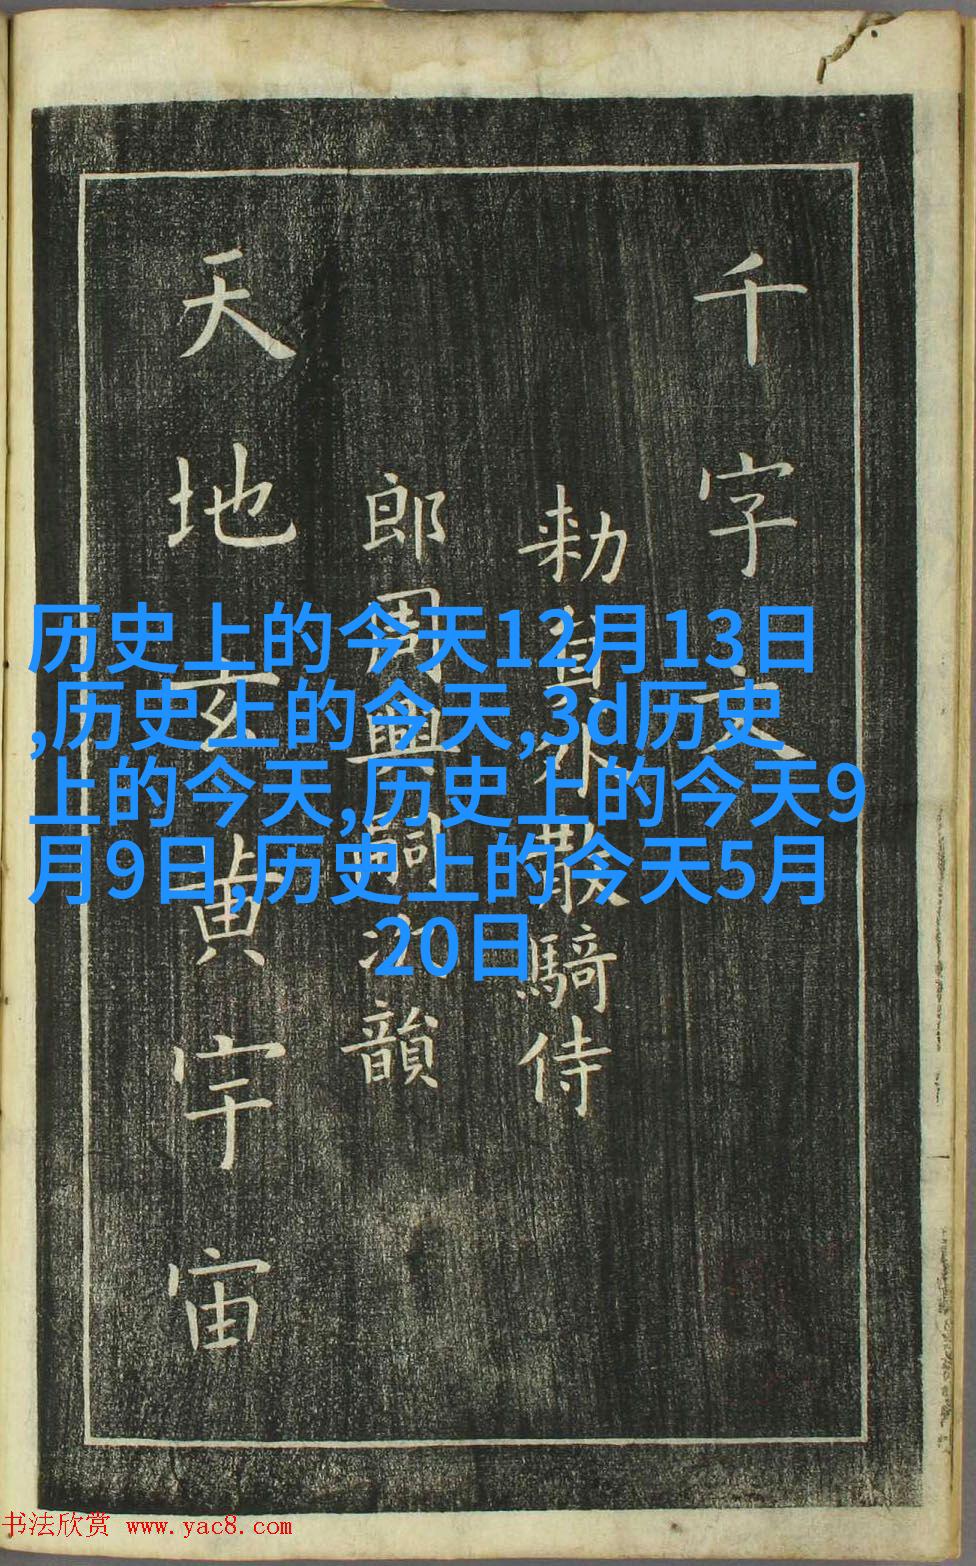 千字文
勑員外散騎侍
郎周興嗣次韻
天地玄黄宇宙
历史上的今天12月13日
,历史上的今天,3d历史
上的今天,历史上的今天9
月9日,历史上的今天5月
20日
书法欣赏 www.yac8.com